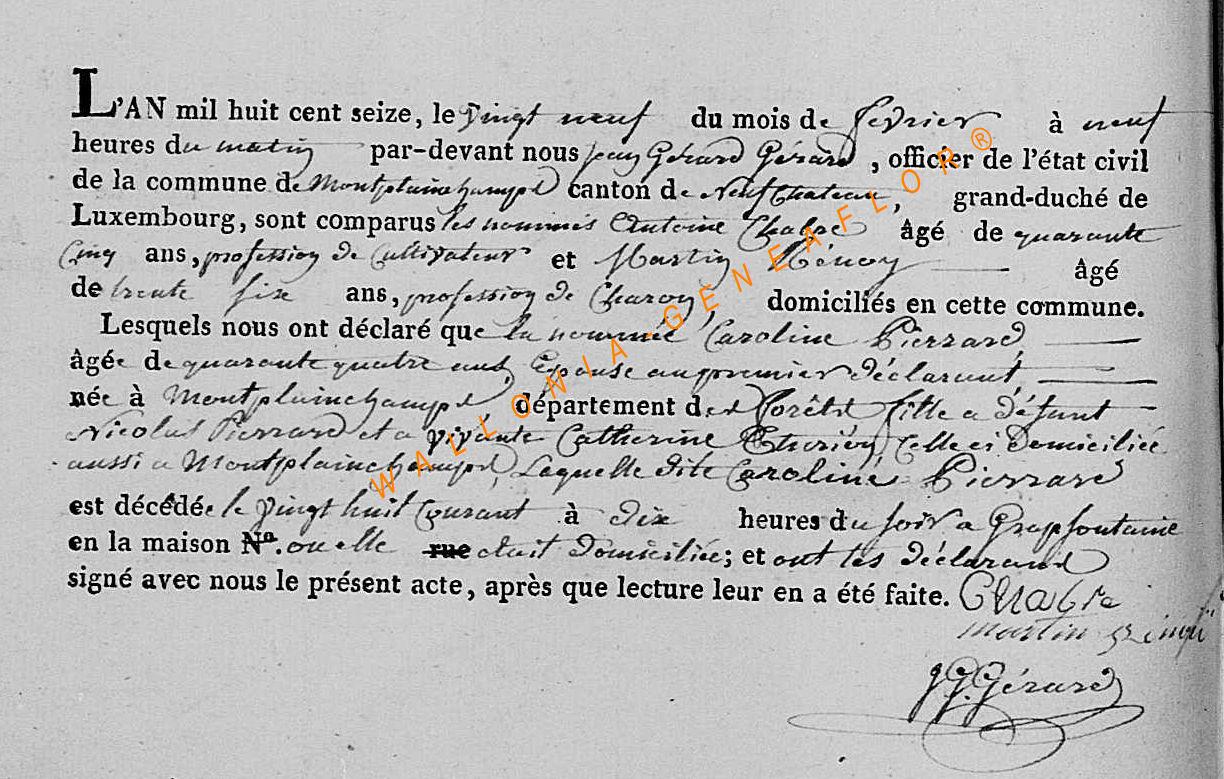 L'AN mil huit cent seize, le vingt neuf du mois de fevrier à neuf
heures du matin par-devant nous jean Gérard Gérard, officier de l'état civil
de la commune de Montplainchamps canton de Neufchateau, grand-duché de
Luxembourg, sont comparus les nommés Antoine Chabre âgé de quarante
Cinq ans, profession de Cultivateur et Martin âgé
de trente six ans, profession de Charon, domiciliés en cette commune.
Lesquels nous ont déclaré que la nommée Caroline Pierrard
âgée de quarante quatre ans, Epouse au premier déclarant,
née à Montplainchamps, département des Forêts fille a défunt
Nicolas Pierrard et a vivante Catherine Celle ci Domiciliée
aussi a Montplainchamps, Laquelle dite Caroline Pierrard
est décédée le vingt huit Courant à dix heures du soir a Grapfontaine
en la maison No. ou elle rue etait Domiciliée; et ont les déclarans
signé avec nous le présent acte, après que lecture leur en a été faite. Chabre
martin
JG. Gérard
WALLONIA-GENEAFLOR®